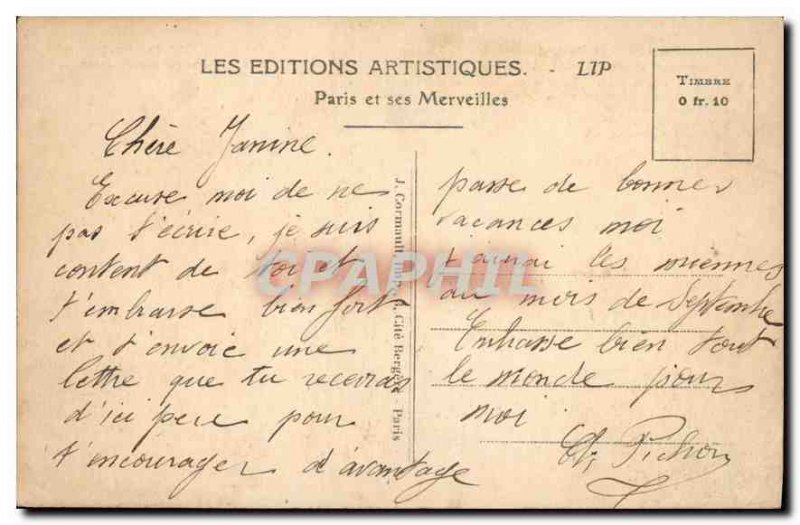 LES EDITIONS ARTISTIQUES. - LIP
Paris et ses Merveilles
TIMBRE
0 fr. 10
Chère Janine.
Excuse moi de ne
pas t'écrire, je suis
content de toi et
t'embrasse bien fort
et t'envoie une
lettre que tu recevras
d'ici peu pour
t'encourager d'avantage
J. Cormault, Cité Bergère, Paris
passe de bonnes
vacances moi
j'aurai les miennes
au mois de Septembre
Embrasse bien tout
le monde pour
moi.
Pichon
CPAPHIL.com